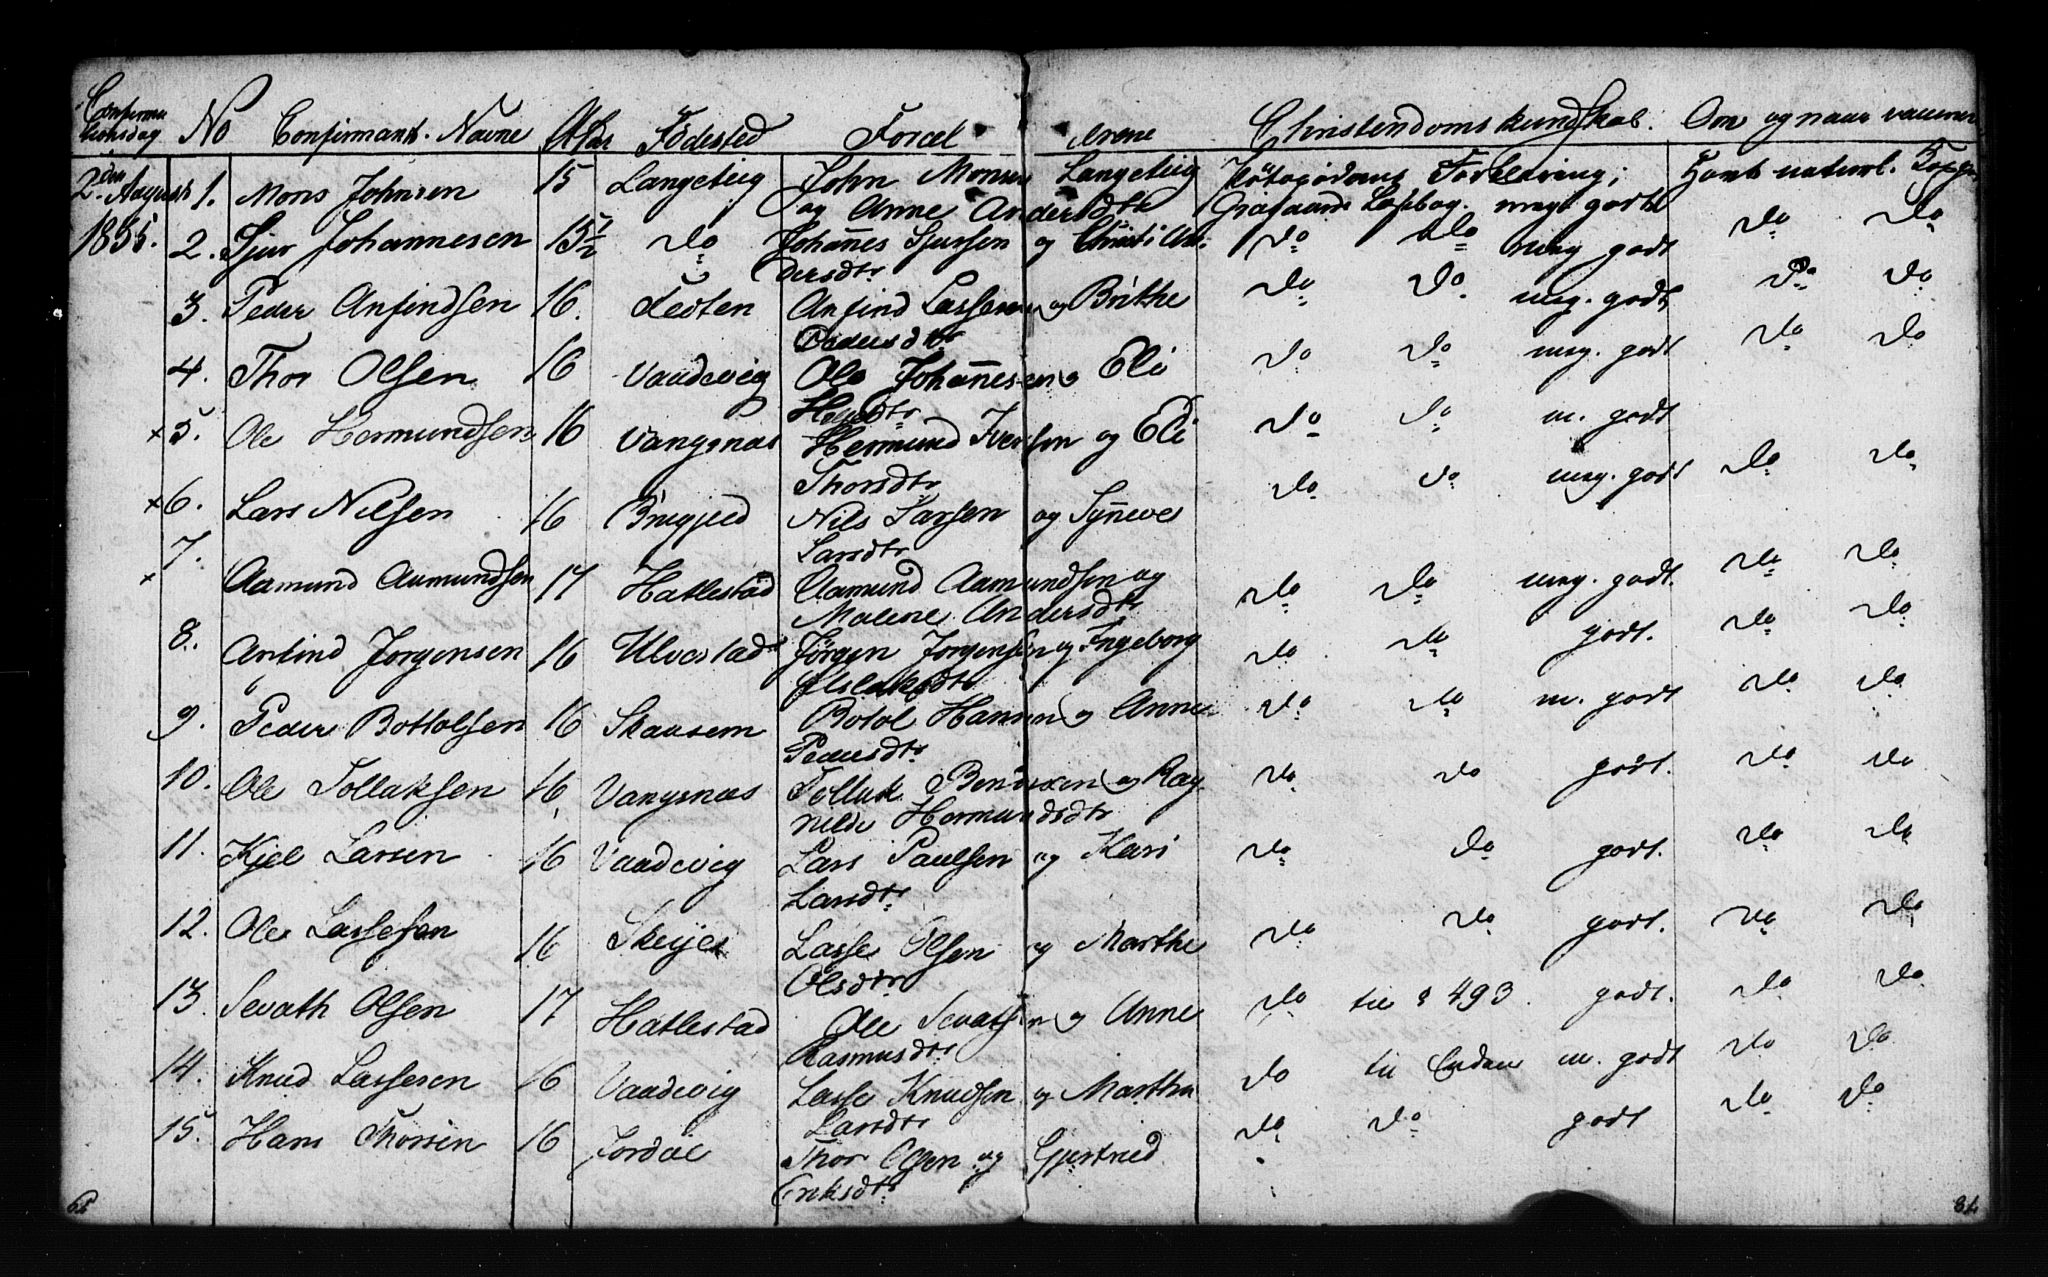 Confirma No Confirmant. Navne Alder Födested Forel drene Christendoms kundskab. Om og naar vaccineret
tionsdag
2den August 1. Mons Johnsen 15 Langeteig John Monsen Langeteig Forklaring;
og Anne Andersdtr meget godt Havt naturl. Kopper
1835. 2. Sjur Johannesen 15 1/2 do Johañes Sjursen og Christi An- do do meg godt do do
dersdtr
3. Peder Anfindsen 16. Tedten Anfind Lassesen og Brithe do do meg. godt do do
Pedersdtr
4. Thor Olsen 16 Vaadevig Ole Johañesen og Eli do do meg. godt do do
5. Ole Hermundsen 16 Vangsnæs Hermund Iversen og Eli do do m. godt
Thorsdtr
6. Lars Nilsen 16 Nils Larsen og Syñeve do do meg. godt do do
Larsdtr
7. Aamund Aamundsen 17 Hatlestad Aamund Aamundsen og do do meg. godt. do do
Malene Andersdtr
8. Anfind Jorgensen 16 Ulvestad Jørgen Jorgensen og Ingeborg do do godt. do do
9. Peder Bottolfsen 16 Skaasem Botol Hansen og Anne do do m. godt do do
Pedersdtr
10. Ole Tollaksen 16 Vangsnæs Tollak Bendixen og Rag- do do godt. do do
nilde Hermundsdtr
11. Kjel Larsen 16 Vaadevig Lars Paulsen og Kari do do godt. do do
Larsdtr
12. Ole Lassesen 16 Lasse Olsen og Marthe do do godt. do do
Olsdtr
13. Sevath Olsen 17 Hatlestad Ole Sevatsen og Anne do til § 493. godt. do do
Rasmusdtr
14. Knud Lassesen 16 Vaadevig Lasse Knudsen og Martha do til Enden m. godt do do
Larsdtr
15. Hans Thorsen 16 Jordal Thor Olsen og Gjertrud do do godt do do
Eriksdtr